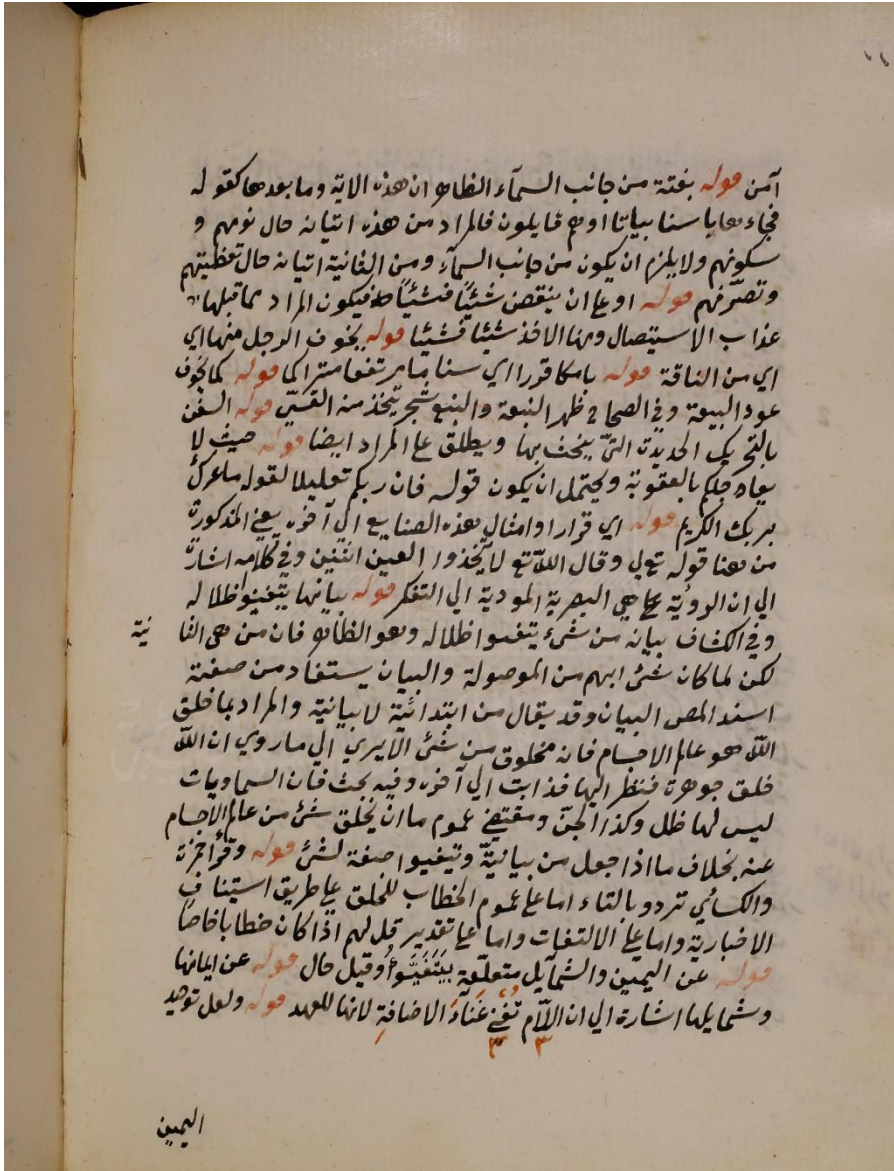 آمن قوله بغتة من جانب السمآء الظاهر ان هذه الاية وما بعدها كقوله
فجاءها باسنا بياتا اوهم قايلون فالمراد من هذه اتيانه حال نومهم و
سكونهم ولا يلزم ان يكون من جانب السمآء ومن الثانية اتيانه حال تغطيتهم
وتصرّفهم قوله او على ان ينقص شئيًا فشئيًا فيكون المراد بما قبلها
عذاب الاسيتصال وبها الاخذ شئيا فشئيا قوله يخوف الرجل منها اي
اي من الناقة قوله تامكا قردا اي سناما مرتفعا متراكما قوله كما يخوف
عود البيعة وفي الصحاح ظهر النبعة والنبع شجر يتخذ منه القسيّ قوله السفن
بالتحريك الحديدة التيّ ينحت بها ويطلق على المراد ايضا قوله حيث لا
يعاجلكم بالعقوبة ويحتمل ان يكون قوله فان ربكم تعليلا لقوله ما غرك
بربك الكريم قوله اي قرارا وامثال هذه الصنايع الي آخره يعني المذكورة
من هنا قوله تعلى وقال اللّه تع لا يتخذوا الهين اثنين وفي كلامه اشارة
الي ان الروية هي البصرية المودية الي التفكر قوله بيانها يتفيئو ظلاله
وفي الكشاف بيان من شئ يتفيوا ظلاله وهو الظاهر فان من هي الثا نية
لكن لما كان شئ ابهم من الموصولة والبيان يستفاد من صفته
اسند المص البيان وقد يقال من ابتدائية لا بيانية والمراد بما خلق
اللّه هو عالم الاجسام فانه مخلوق من شئ الايري الي ما روي ان اللّه
خلق جوهرة فنظر اليها فذابت الي آخره وفيه بحث فان السماويات
ليس لها ظل وكذا الجنّ ومقتضي عموم ما ان يخلق شئ من عالم الاجسام
عنه بخلاف ما اذا جعل من بيانيةّ وتيفيوا صفة لشئ قوله وقرأ حمزة
والكسائي تردو بالتاء اما على عموم الخطاب للخلق علي طريق استيناف
الاخبارية واما على الالتفات واما على تقدير قل لهم اذا كان خطابا خاصا
قوله عن اليمين والشمآيل متعلقة بيتفيّوا وقيل حال قوله عن ايمانها
وشمايلها اشارة الي ان اللآم تغني غنآء الاضافة لانها للعهد قوله ولعل توحيد
اليمين